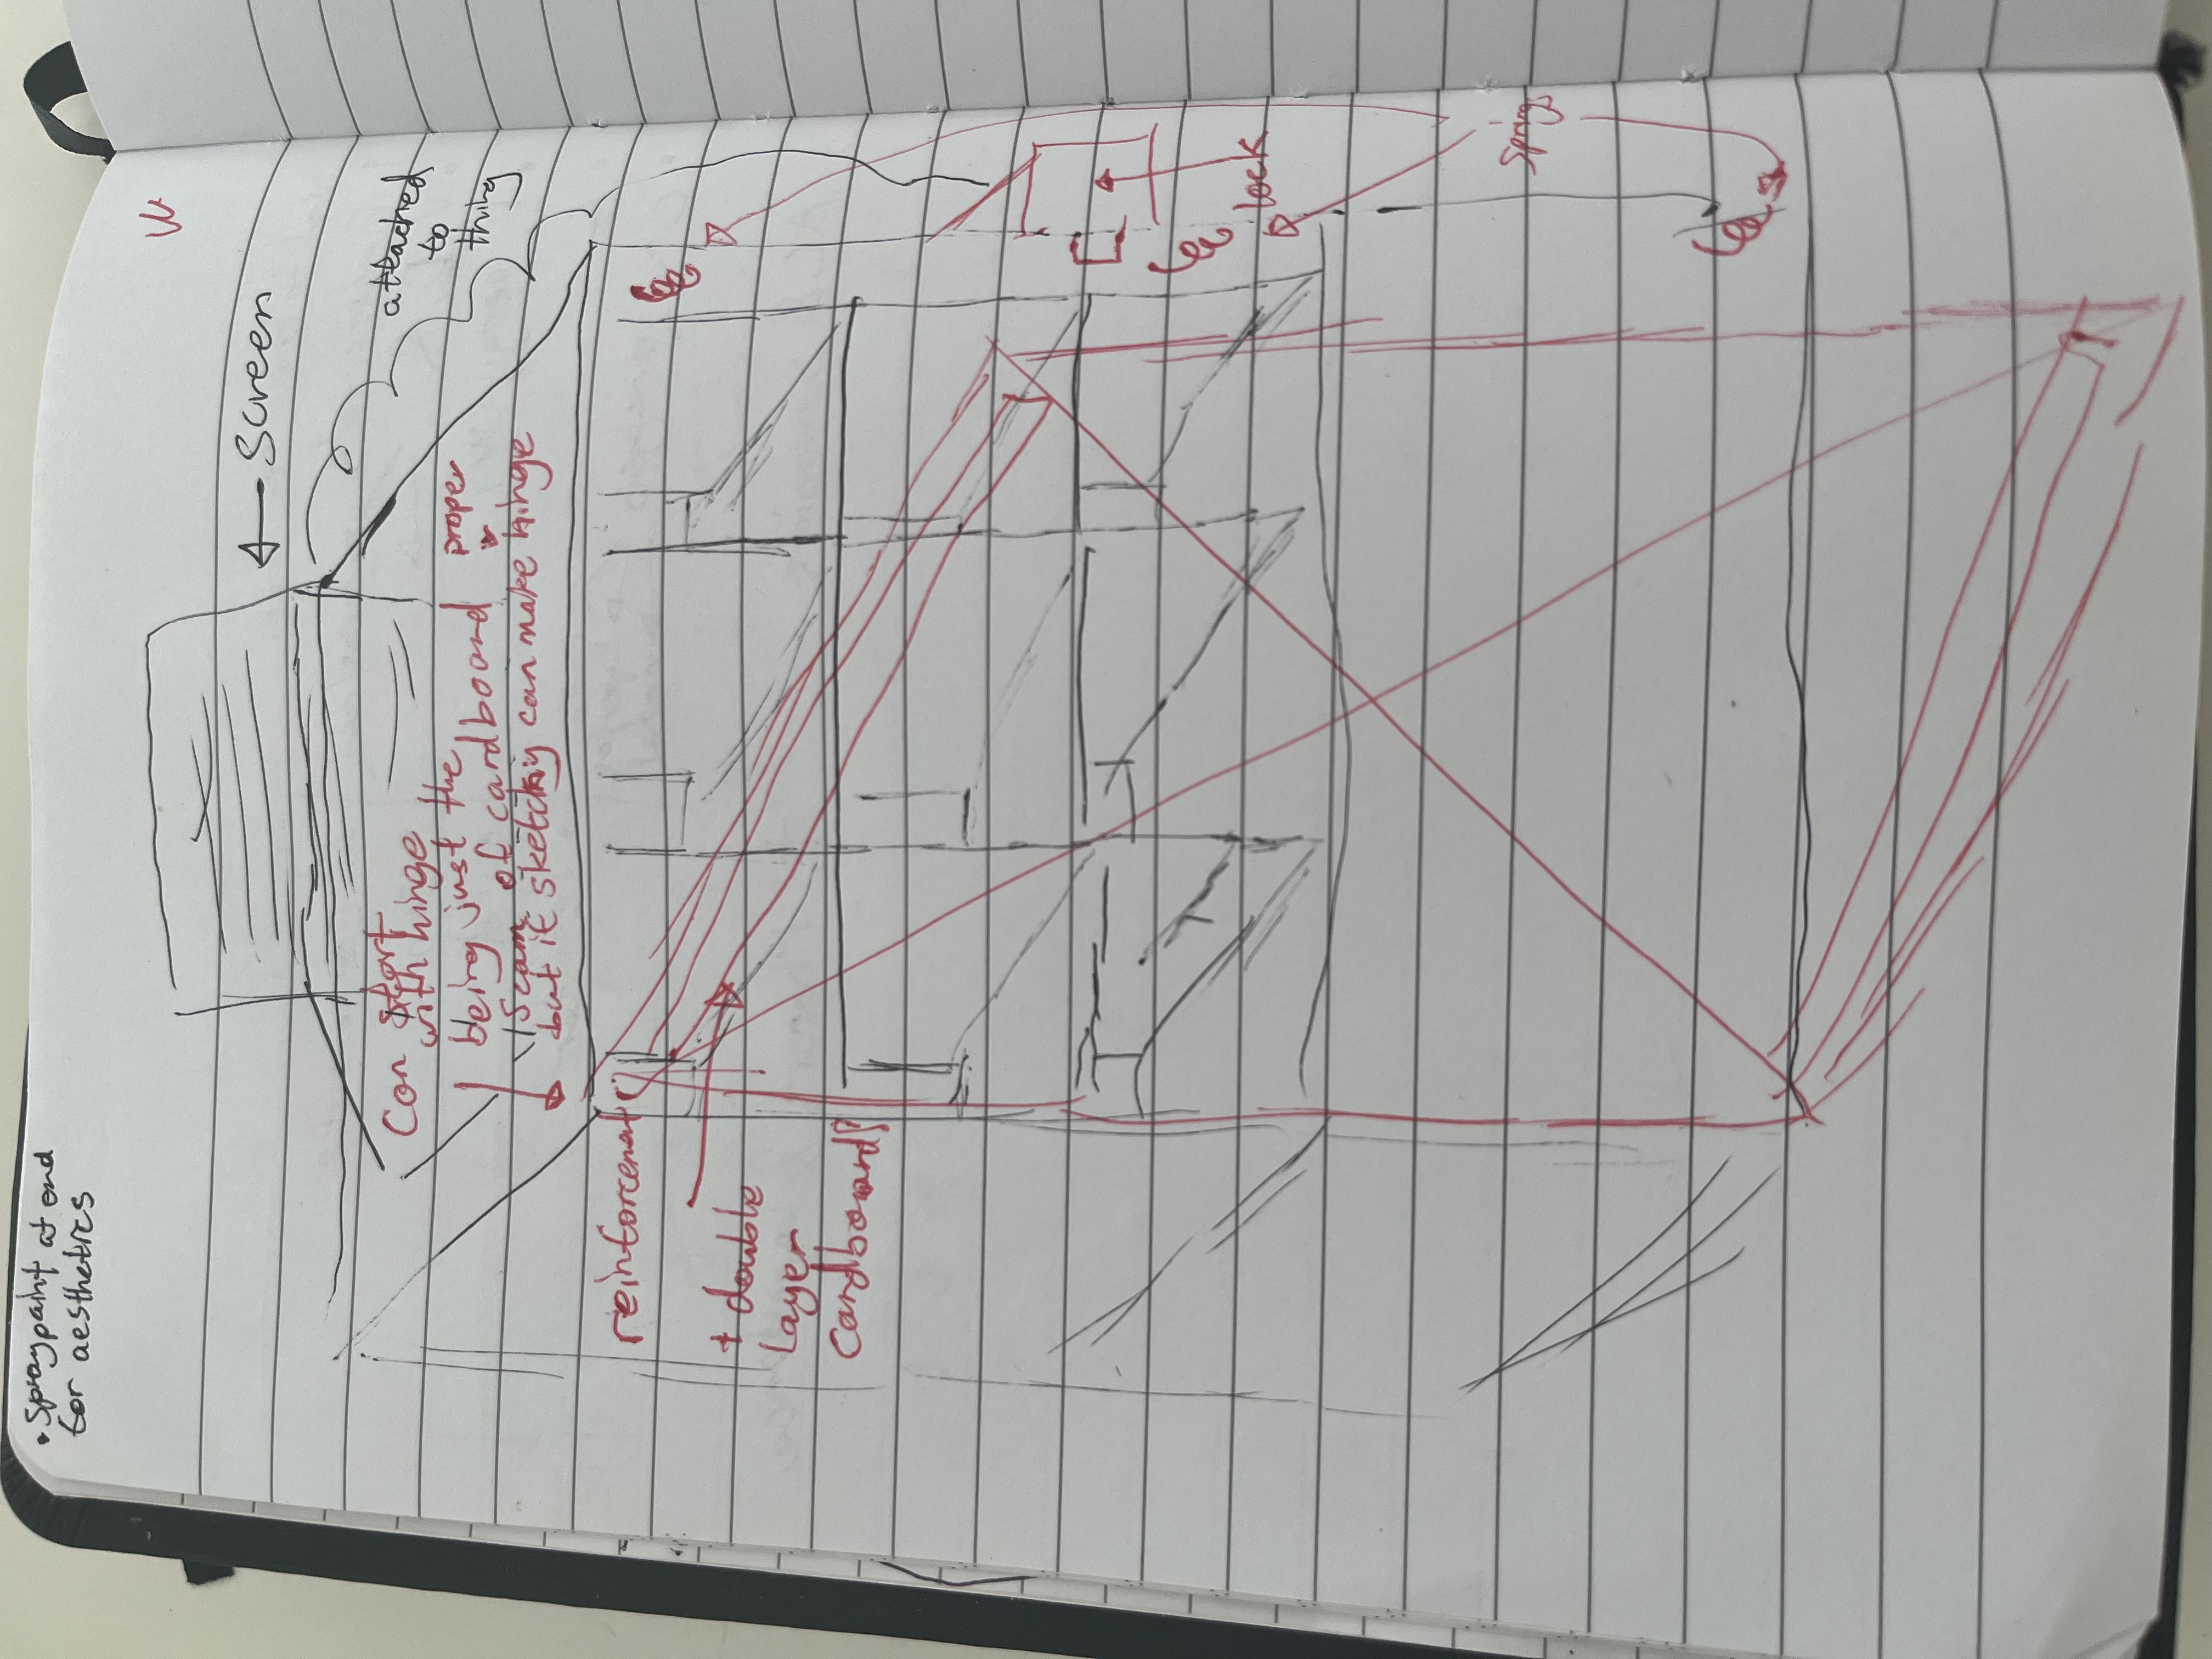 • Spraypaint at end
for aesthetics
Screen
attached
to
thing
Can start
with hinge
being just the
seam of cardboard
but if sketchy can make proper hinge
reinforcement
+ double
layer
cardboard?
lock
springs